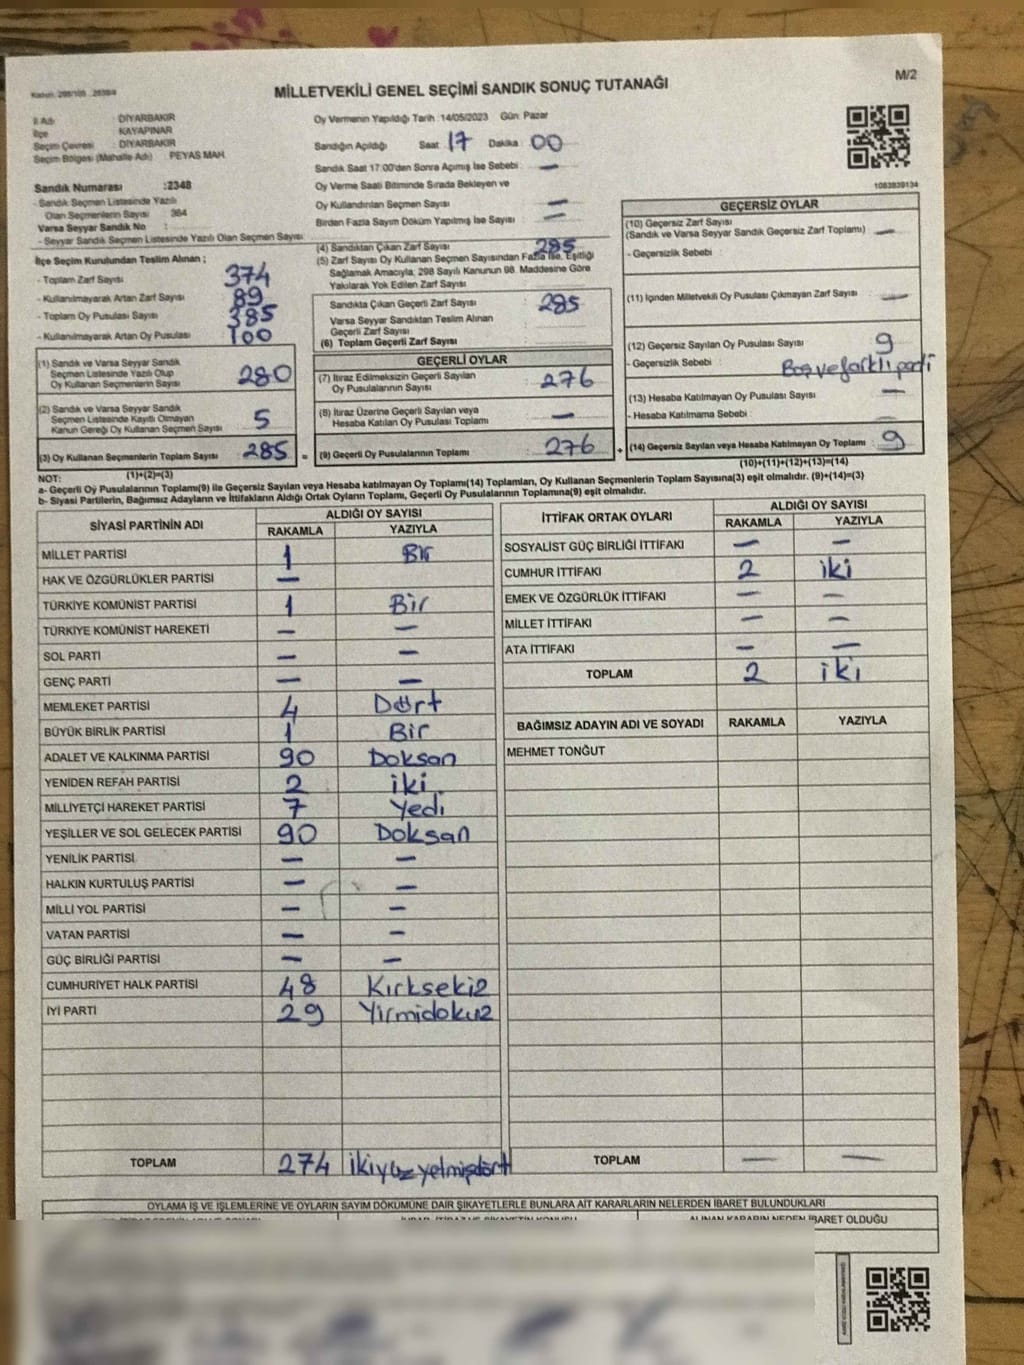 M/2
MİLLETVEKİLİ GENEL SEÇİMİ SANDIK SONUÇ TUTANAĞI
İl Adı : DİYARBAKIR
İlçe : KAYAPINAR
Seçim Çevresi : DİYARBAKIR
Seçim Bölgesi (Mahalle Adı) : PEYAS MAH
Sandık Numarası : 2348
- Sandık Seçmen Listesinde Yazılı
Olan Seçmenlerin Sayısı : 364
Varsa Seyyar Sandık No :
- Seyyar Sandık Seçmen Listesinde Yazılı Olan Seçmen Sayısı
İlçe Seçim Kurulundan Teslim Alınan ;
- Toplam Zarf Sayısı 374
- Kullanılmayarak Artan Zarf Sayısı 89
- Toplam Oy Pusulası Sayısı 385
- Kullanılmayarak Artan Oy Pusulası 100
(1) Sandık ve Varsa Seyyar Sandık
Seçmen Listesinde Yazılı Olup
Oy Kullanan Seçmenlerin Sayısı 280
(2) Sandık ve Varsa Seyyar Sandık
Seçmen Listesinde Kayıtlı Olmayan
Kanun Gereği Oy Kullanan Seçmen Sayısı 5
(3) Oy Kullanan Seçmenlerin Toplam Sayısı 285 =
(1)+(2)=(3)
Oy Vermenin Yapıldığı Tarih : 14/05/2023 Gün: Pazar
Sandığın Açıldığı Saat : 17 Dakika : 00
Sandık Saat 17:00'den Sonra Açımış İse Sebebi : —
Oy Verme Saati Bitiminde Sırada Bekleyen ve
Oy Kullandırılan Seçmen Sayısı : —
Birden Fazla Sayım Döküm Yapılmış İse Sayısı : —
(4) Sandıktan Çıkan Zarf Sayısı 285
(5) Zarf Sayısı Oy Kullanan Seçmen Sayısından Fazla İse, Eşitliği
Sağlamak Amacıyla; 298 Sayılı Kanunun 98. Maddesine Göre
Yakılarak Yok Edilen Zarf Sayısı
Sandıkta Çıkan Geçerli Zarf Sayısı 285
Varsa Seyyar Sandıktan Teslim Alınan
Geçerli Zarf Sayısı
(6) Toplam Geçerli Zarf Sayısı
GEÇERLİ OYLAR
(7) İtiraz Edilmeksizin Geçerli Sayılan
Oy Pusulalarının Sayısı 276
(8) İtiraz Üzerine Geçerli Sayılan veya
Hesaba Katılan Oy Pusulası Toplamı —
(9) Geçerli Oy Pusulalarının Toplamı 276 +
1083839134
GEÇERSİZ OYLAR
(10) Geçersiz Zarf Sayısı
(Sandık ve Varsa Seyyar Sandık Geçersiz Zarf Toplamı) —
- Geçersizlik Sebebi :
(11) İçinden Milletvekili Oy Pusulası Çıkmayan Zarf Sayısı —
(12) Geçersiz Sayılan Oy Pusulası Sayısı 9
- Geçersizlik Sebebi : Boş ve farklı parti
(13) Hesaba Katılmayan Oy Pusulası Sayısı —
- Hesaba Katılmama Sebebi : —
(14) Geçersiz Sayılan veya Hesaba Katılmayan Oy Toplamı 9
(10)+(11)+(12)+(13)=(14)
NOT:
a- Geçerli Oy Pusulalarının Toplamı(9) ile Geçersiz Sayılan veya Hesaba katılmayan Oy Toplamı(14) Toplamları, Oy Kullanan Seçmenlerin Toplam Sayısına(3) eşit olmalıdır. (9)+(14)=(3)
b- Siyasi Partilerin, Bağımsız Adayların ve İttifakların Aldığı Ortak Oyların Toplamı, Geçerli Oy Pusulalarının Toplamına(9) eşit olmalıdır.
SİYASİ PARTİNİN ADI ALDIĞI OY SAYISI
RAKAMLA YAZIYLA
MİLLET PARTİSİ 1 Bir
HAK VE ÖZGÜRLÜKLER PARTİSİ —
TÜRKİYE KOMÜNİST PARTİSİ 1 Bir
TÜRKİYE KOMÜNİST HAREKETİ — —
SOL PARTİ — —
GENÇ PARTİ — —
MEMLEKET PARTİSİ 4 Dört
BÜYÜK BİRLİK PARTİSİ 1 Bir
ADALET VE KALKINMA PARTİSİ 90 Doksan
YENİDEN REFAH PARTİSİ 2 iki
MİLLİYETÇİ HAREKET PARTİSİ 7 Yedi
YEŞİLLER VE SOL GELECEK PARTİSİ 90 Doksan
YENİLİK PARTİSİ — —
HALKIN KURTULUŞ PARTİSİ — —
MİLLİ YOL PARTİSİ — —
VATAN PARTİSİ — —
GÜÇ BİRLİĞİ PARTİSİ — —
CUMHURİYET HALK PARTİSİ 48 Kırksekiz
İYİ PARTİ 29 Yirmidokuz
TOPLAM 274 ikiyüzyetmişdört
İTTİFAK ORTAK OYLARI ALDIĞI OY SAYISI
RAKAMLA YAZIYLA
SOSYALİST GÜÇ BİRLİĞİ İTTİFAKI — —
CUMHUR İTTİFAKI 2 iki
EMEK VE ÖZGÜRLÜK İTTİFAKI — —
MİLLET İTTİFAKI — —
ATA İTTİFAKI — —
TOPLAM 2 iki
BAĞIMSIZ ADAYIN ADI VE SOYADI RAKAMLA YAZIYLA
MEHMET TONĞUT
TOPLAM — —
OYLAMA İŞ VE İŞLEMLERİNE VE OYLARIN SAYIM DÖKÜMÜNE DAİR ŞİKAYETLERLE BUNLARA AİT KARARLARIN NELERDEN İBARET BULUNDUKLARI
ALINAN KARARIN NEDEN İBARET OLDUĞU